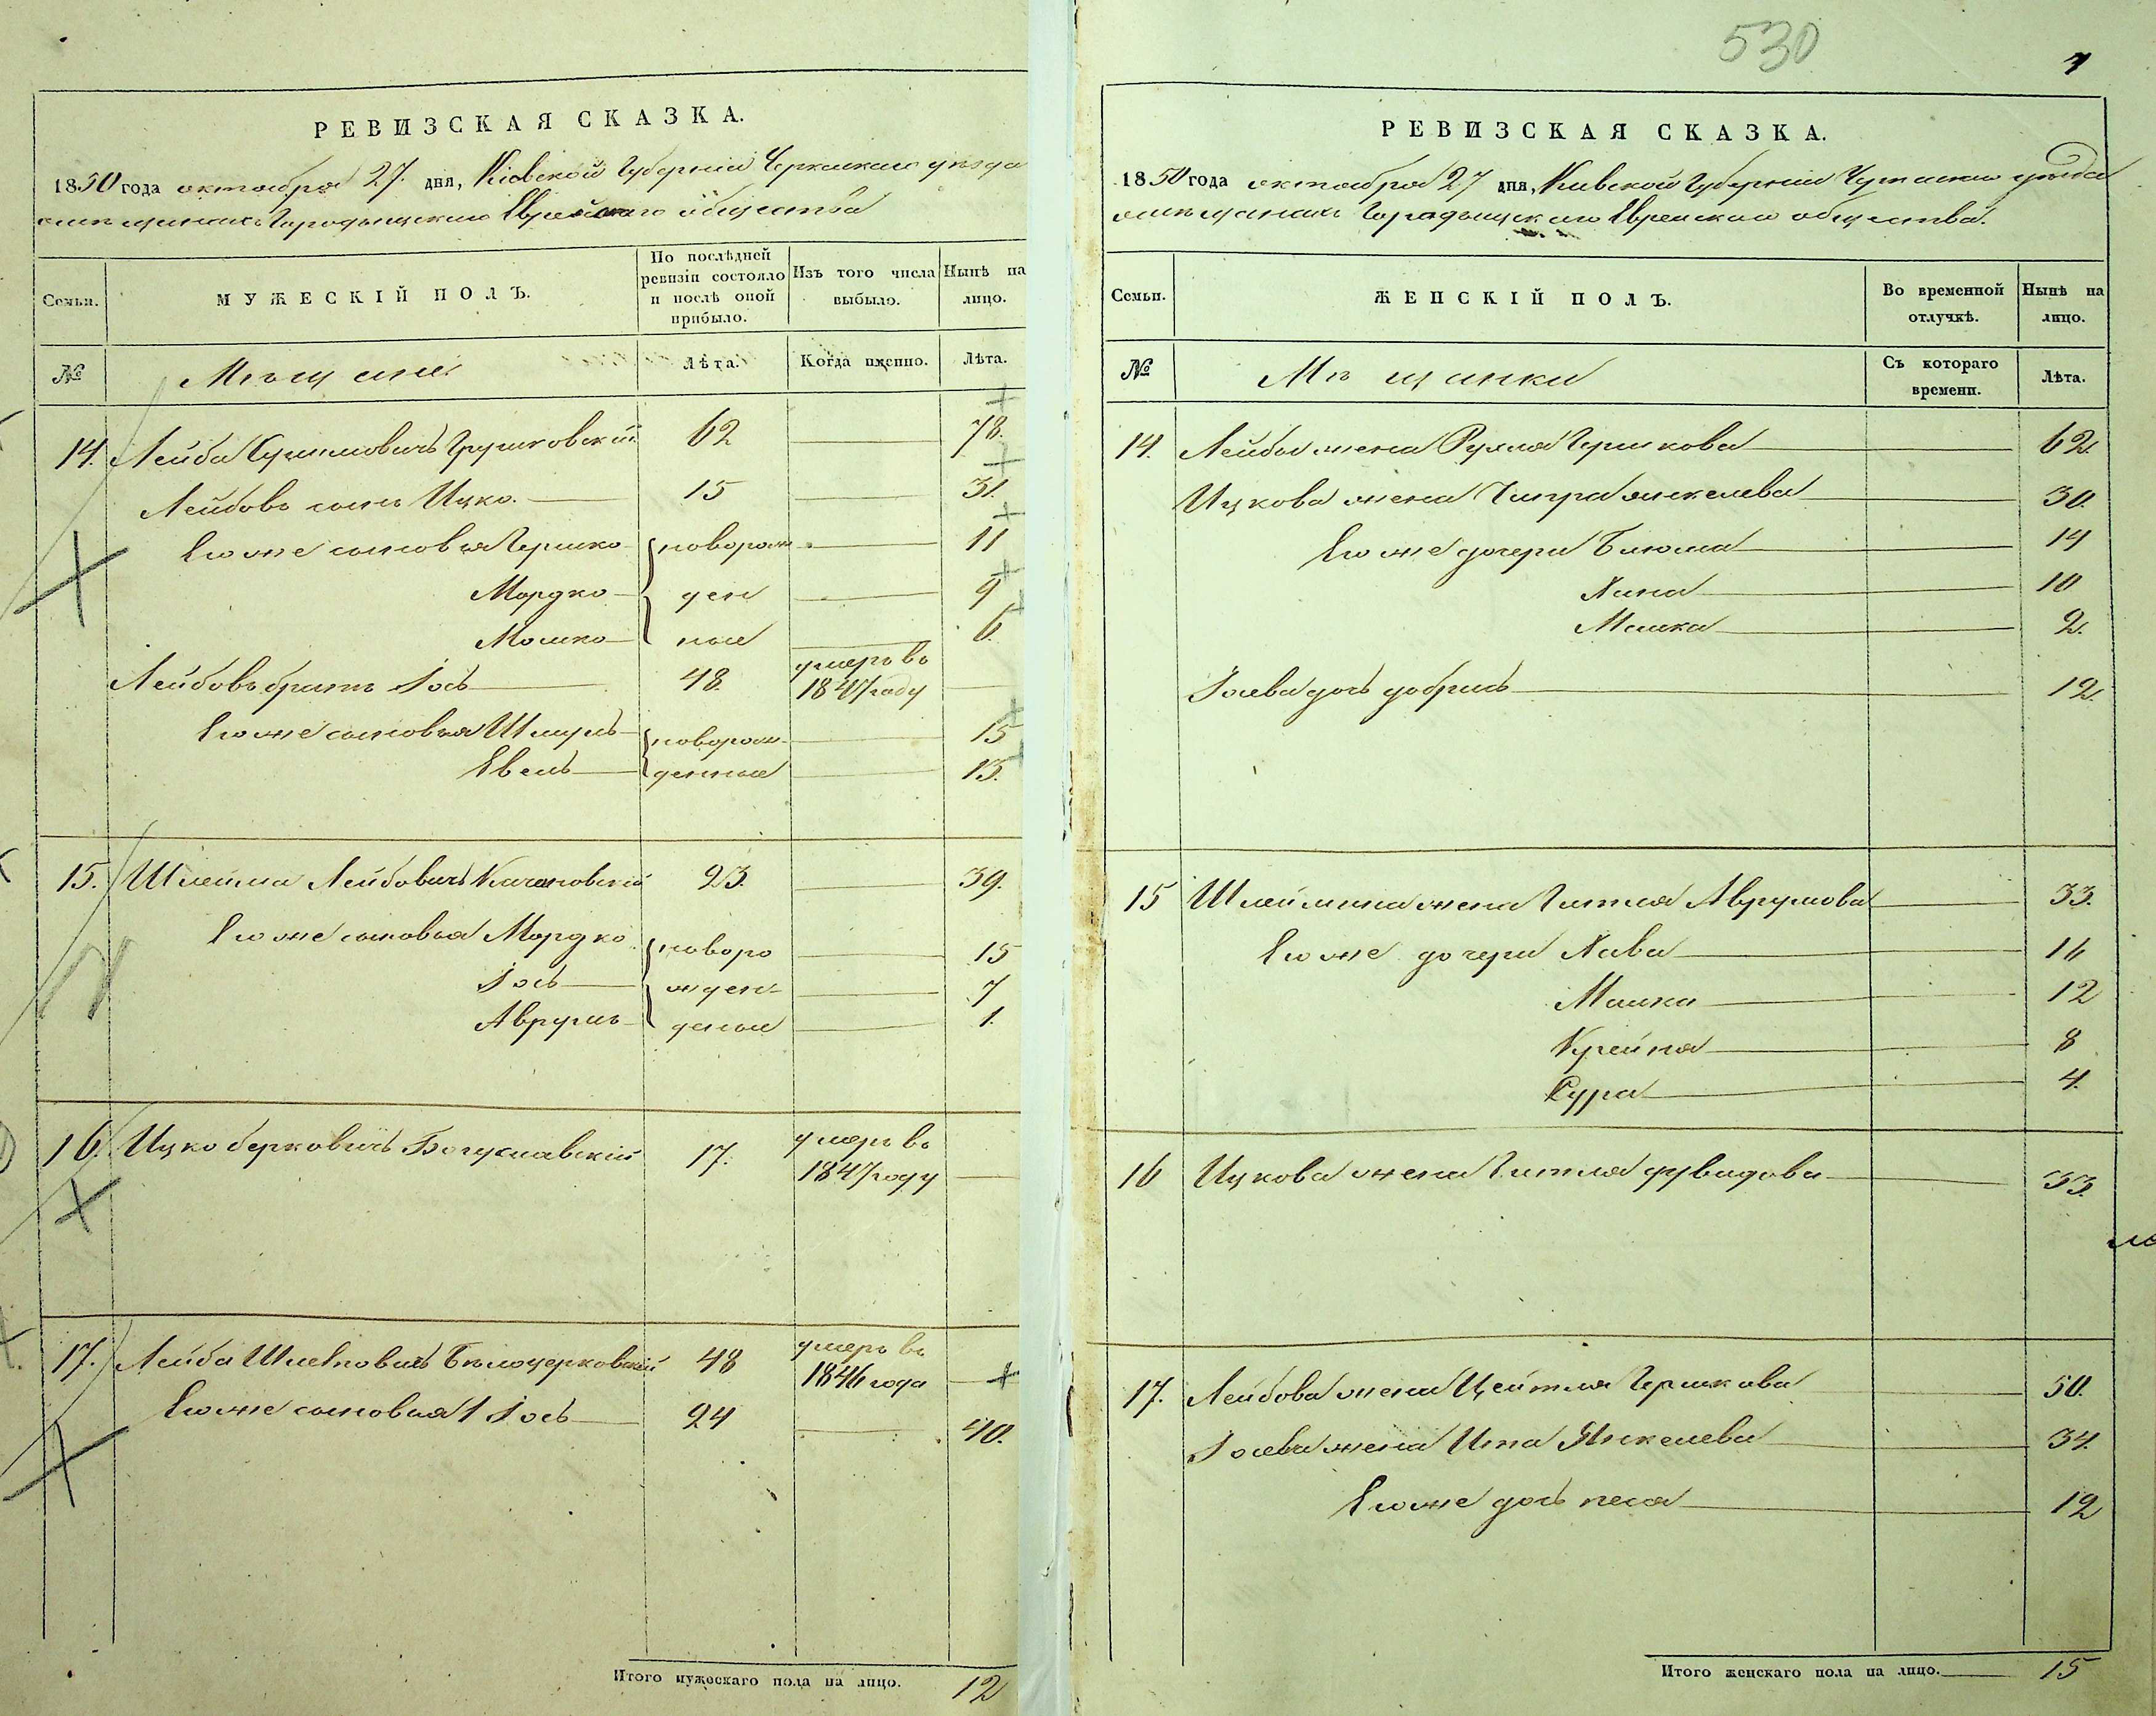 РЕВИЗСКАЯ СКАЗКА.
1850 года октября 27. дня, Кіевской Губерніи Черкаскаго уѣзда
о мѣщанахъ Городыщскаго Еврейскаго общества
Семьи.
МУЖЕСКІЙ ПОЛЪ.
По послѣдней ревизіи состояло и послѣ оной прибыло.
Изъ того числа выбыло.
Нынѣ на лицо.
№
Мѣщане
Лѣта.
Когда именно.
Лѣта.
14. Лейба Грушковскій 62 78.
Лейбовъ сынъ Ицко. 15 31.
Его же сыновья Гершко новорож 11
Мордко ден 9
Мошко ные 6.
Лейбовъ братъ Іось 48. умеръ въ 1847 году
Его же сыновья Шмуль новорож 15
Евель денные 13.
15. Шлейма Лейбовичъ Качановскій 23. 39.
Его же сыновья Мордко новоро 15
Іось жден 7
Аврумъ деные 1.
16. Ицко берковичъ Богуславскій 17. умеръ въ 1847 году
17. Лейба Бѣлоцерковскій 48 умеръ въ 1846 года
Его же сыновья 1 Іось 24 40.
Итого мужескаго пола на лицо. 12
530
РЕВИЗСКАЯ СКАЗКА.
1850 года октября 27 дня, Киевской Губерніи уѣзда
о мѣщанахъ Городыщскаго Еврейскаго общества.
Семьи.
ЖЕНСКІЙ ПОЛЪ.
Во временной отлучкѣ.
Нынѣ на лицо.
№
Мѣщанки
Съ котораго времени.
Лѣта.
14. Лейбы жена Рухля Гершкова 62.
Ицкова жена янкелева 30.
Его же дочери Блюма 14
Хана 10
Машка 2.
Іосева дочь добрись 12.
15 Шлеймина жена Гитля Аврумова 33.
Его же дочери Хава 16
Машка 12
Крейня 8
Сура 4.
16 Ицкова жена Гитля дувидова 33.
17. Лейбова жена Цейтля Гершкова 50.
Іосева жена Ита Янкелева 34.
Его же дочь песя 12
Итого женскаго пола на лицо. 15